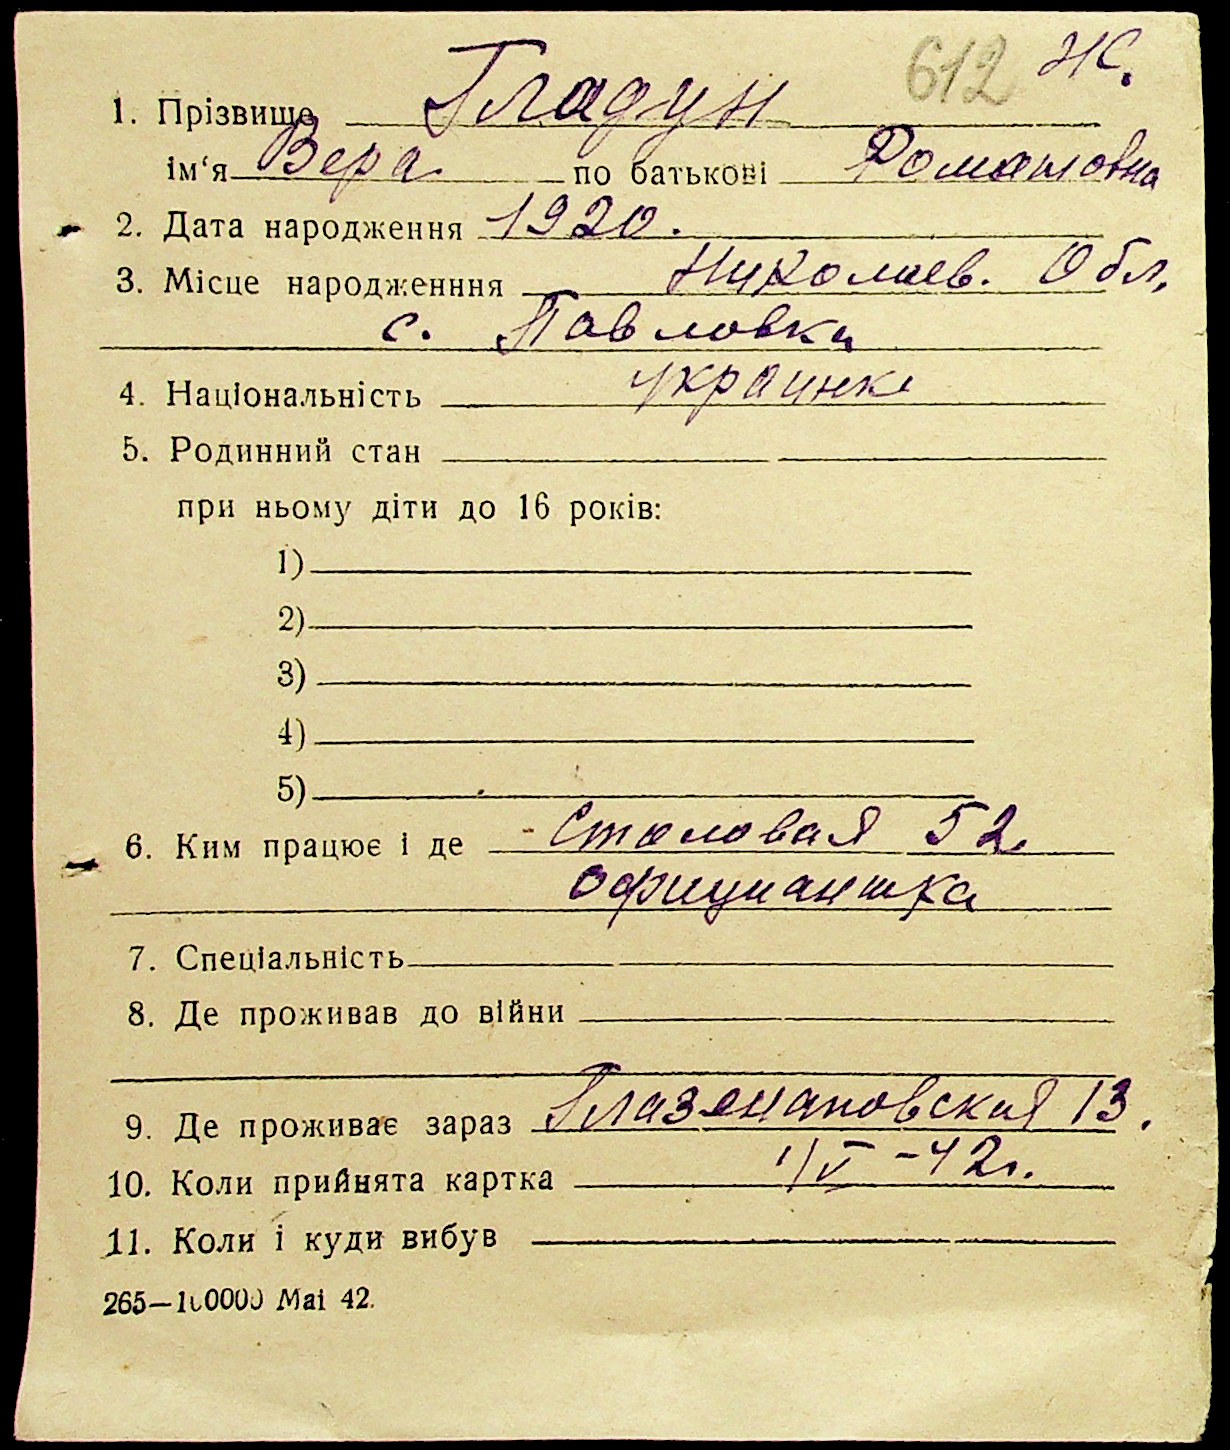 612 Ж.
1. Прізвище Гладун
ім‘я Вера по батькові Романовна
2. Дата народження 1920.
3. Місце народженння Николаев. Обл.
с. Павловка
4. Національність украинка
5. Родинний стан
при ньому діти до 16 років:
1)
2)
3)
4)
5)
6. Ким працює і де Столовая 52
официантка
7. Спеціальність
8. Де проживав до війни
9. Де проживає зараз Глазенаповская 13.
10. Коли прийнята картка 1/V -42г.
11. Коли і куди вибув
265—100000 Mai 42.